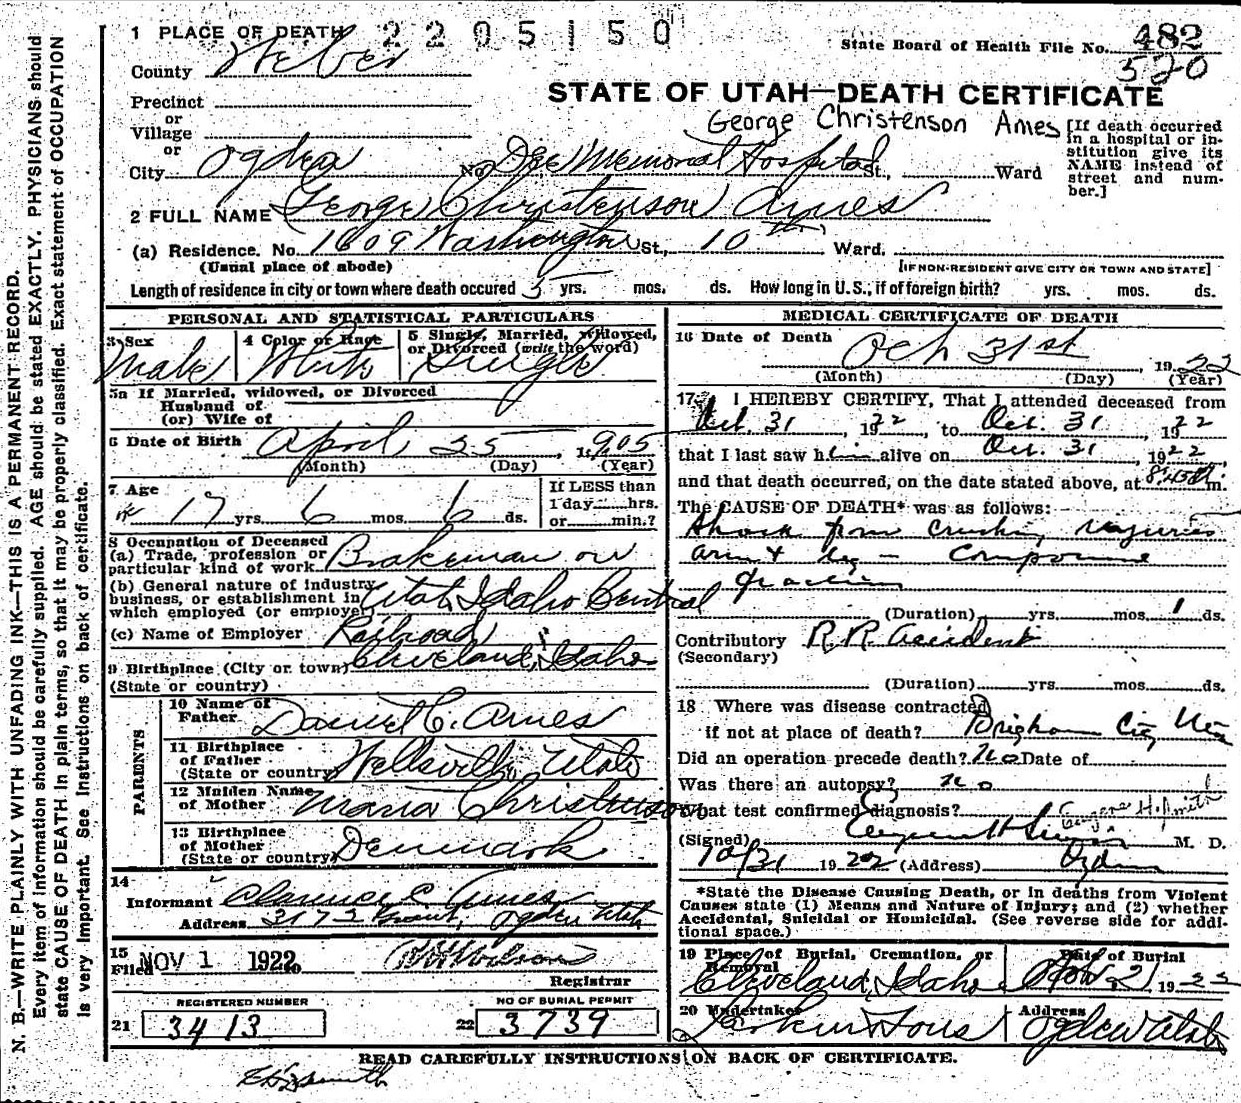 1 PLACE OF DEATH 2205150
State Board of Health File No. 482
520
County Weber
Precinct
or
Village
or
STATE OF UTAH—DEATH CERTIFICATE
George Christenson Ames
City Ogden No. Dee Memorial Hospital St., Ward
[If death occurred in a hospital or institution give its NAME instead of street and number.]
2 FULL NAME George Christenson Ames
(a) Residence. No. 1609 Washington St., 10th Ward.
(Usual place of abode) [IF NON-RESIDENT GIVE CITY OR TOWN AND STATE]
Length of residence in city or town where death occured 5 yrs. mos. ds. How long in U. S., if of foreign birth? yrs. mos. ds.
PERSONAL AND STATISTICAL PARTICULARS
3 Sex
Male
4 Color or Race
White
5 Single, Married, widowed, or Divorced (write the word)
Single
5a If Married, widowed, or Divorced
Husband of
(or) Wife of
6 Date of Birth April 25, 1905
(Month) (Day) (Year)
7 Age
17 yrs. 6 mos. 6 ds.
If LESS than
1 day hrs.
or min.?
8 Occupation of Deceased
(a) Trade, profession or
particular kind of work Brakeman on
(b) General nature of industry
business, or establishment in
which employed (or employer) Utah Idaho Central
(c) Name of Employer Railroad
9 Birthplace (City or town) Cleveland, Idaho
(State or country)
PARENTS
10 Name of
Father Daniel C. Ames
11 Birthplace
of Father
(State or country) Wellsville, Utah
12 Maiden Name
of Mother Maria Christenson
13 Birthplace
of Mother
(State or country) Denmark
14
Informant Clarence E. Ames
Address 3172 Grant, Ogden Utah
15
Filed NOV 1 1922 Wilson
Registrar
REGISTERED NUMBER
21 3413
NO OF BURIAL PERMIT
22 3739
MEDICAL CERTIFICATE OF DEATH
16 Date of Death Oct 31st, 1922
(Month) (Day) (Year)
17 I HEREBY CERTIFY, That I attended deceased from
Oct. 31, 1922, to Oct. 31, 1922
that I last saw him alive on Oct. 31, 1922,
and that death occurred, on the date stated above, at 8:45 m.
The CAUSE OF DEATH* was as follows:
Shock from crushing injuries
arm & leg – compound
fracture
(Duration) yrs. mos. 1 ds.
Contributory R.R. accident
(Secondary)
(Duration) yrs. mos. ds.
18 Where was disease contracted
if not at place of death? Brigham City Utah
Did an operation precede death? no Date of
Was there an autopsy? no
What test confirmed diagnosis?
Eugene H. Smith
(Signed) Eugene H Smith M. D.
10/31 1922 (Address) Ogden
*State the Disease Causing Death, or in deaths from Violent
Causes state (1) Means and Nature of Injury; and (2) whether
Accidental, Suicidal or Homicidal. (See reverse side for addi-
tional space.)
19 Place of Burial, Cremation, or
Removal
Cleveland, Idaho
Date of Burial
Nov 2, 1922
20 Undertaker
Larkin & Sons
Address
Ogden Utah
READ CAREFULLY INSTRUCTIONS ON BACK OF CERTIFICATE.
N. B.—WRITE PLAINLY WITH UNFADING INK—THIS IS A PERMANENT RECORD.
Every item of information should be carefully supplied. AGE should be stated EXACTLY. PHYSICIANS should
state CAUSE OF DEATH in plain terms, so that it may be properly classified. Exact statement of OCCUPATION
is very important. See instructions on back of certificate.